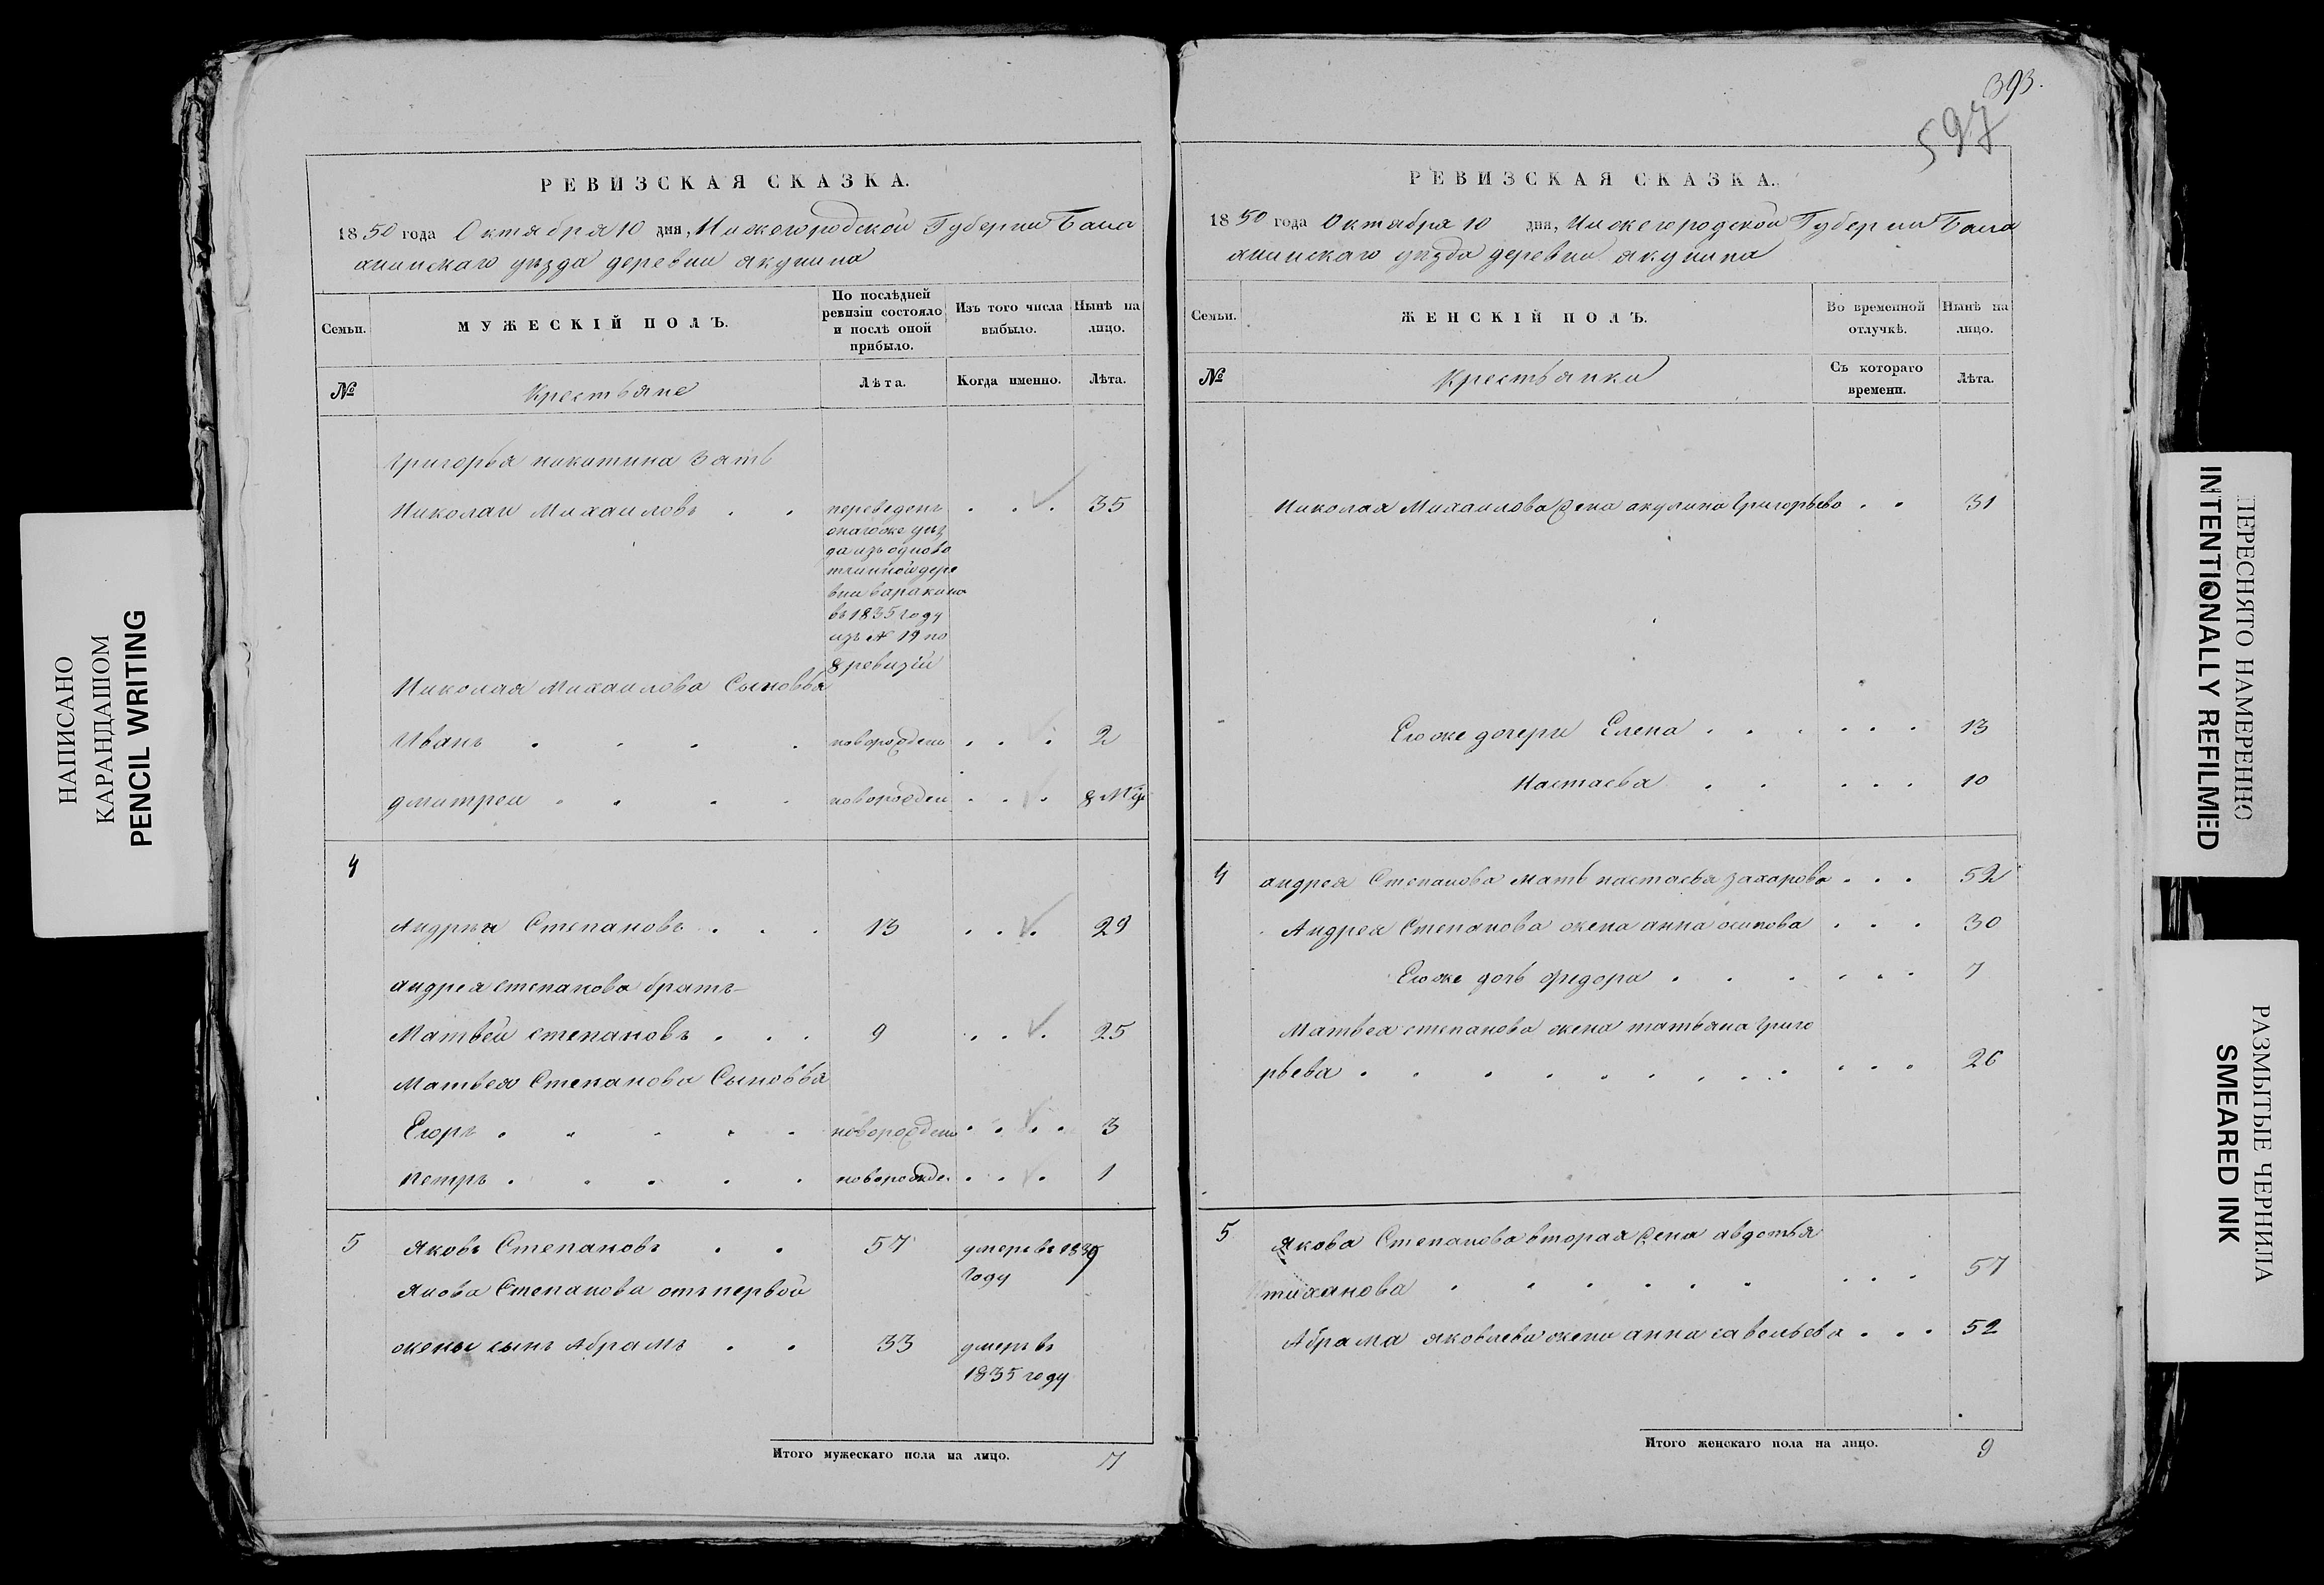 НАПИСАНО
КАРАНДАШОМ
PENCIL WRITING
РЕВИЗСКАЯ СКАЗКА.
1850 года Октября 10 дня, Нижегородской Губернии Бала
хнинскаго уѣзда деревни якунина
Семьи.
МУЖЕСКІЙ ПОЛЪ.
По послѣдней
ревизіи состояло
и послѣ оной
прибыло.
Изъ того числа
выбыло.
Нынѣ на
лицо.
№
Крестьяне
Лѣта.
Когда именно.
Лѣта.
Григорья никитина Зять
Николаи Михаиловъ . . переведенъ . . . 35
онагоже уѣз
да изъ одново
тчинной дере
вни варакина
въ 1835 году
изъ № 19 по
8 ревизіи
Николая Михаилова Сыновья
Иванъ . . . . новорожденъ . . . 2
дмитреи . . . . новорожден . . . 8 М
4
Андрѣи Степановъ . . . 13 . . . 29
андрея степанова братъ
Матвей степановъ . . . 9 . . . 25
Матвея Степанова Сыновья
Егоръ . . . . . новорожденъ . . . . 3
петръ . . . . . новорожде. . . . 1
5 яковъ Степановъ . . 57 умеръ въ 1839
году
Якова Степанова отъ первой
жены сынъ Абрамъ . . 33 умеръ въ
1835 году
Итого мужескаго пола на лицо. 7
393.
597
РЕВИЗСКАЯ СКАЗКА.
1850 года Октября 10 дня, Нижегородской Губернии Бала
хнинскаго уѣзда деревни якунина
Семьи.
ЖЕНСКІЙ ПОЛЪ.
Во временной
отлучкѣ.
Нынѣ на
лицо.
№
Крестьянки
Съ котораго
времени.
Лѣта.
Николая Михаилова жена акулина Григорьева . . 31
Егоже дочери Елена . . . . . . 13
Настасья . . . . . 10
4 андрея Степанова мать настасья захарова . . . 52
Андрея Степанова жена анна осипова . . . 30
Егоже дочь федора . . . . . . 7
Матвея степанова жена татьяна Григо
рьева . . . . . . . . . . . 26
5 якова Степанова вторая жена авдотья
тиханова . . . . . . . . . 57
Абрама яковлева жена анна савельева . . . 52
Итого женскаго пола на лицо. 9
ПЕРЕСНЯТО НАМЕРЕННО
INTENTIONALLY REFILMED
РАЗМЫТЫЕ ЧЕРНИЛА
SMEARED INK